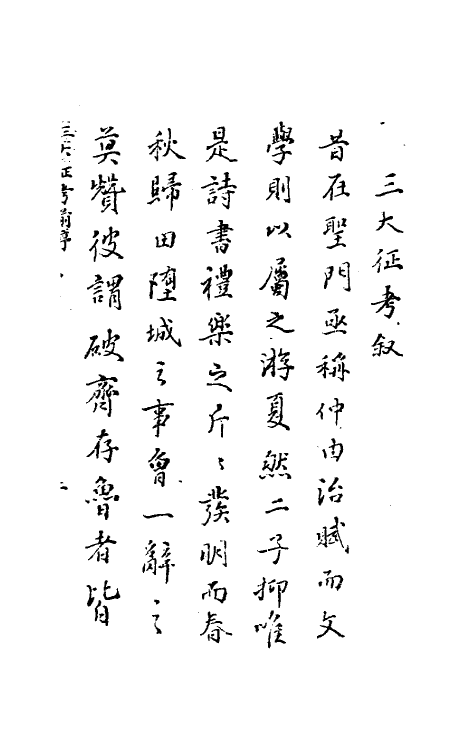 三大征考叙
昔在聖門亟稱仲由治賦而文
學則以屬之游夏然二子抑唯
是詩書禮樂之斤〻發明而春
秋歸田墮城之事曾一辭之
莫贊彼謂破齊存魯者皆
三大征考 一